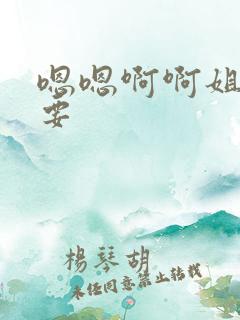 嗯嗯啊啊姐
要
楊琴胡
未经同意禁止转载